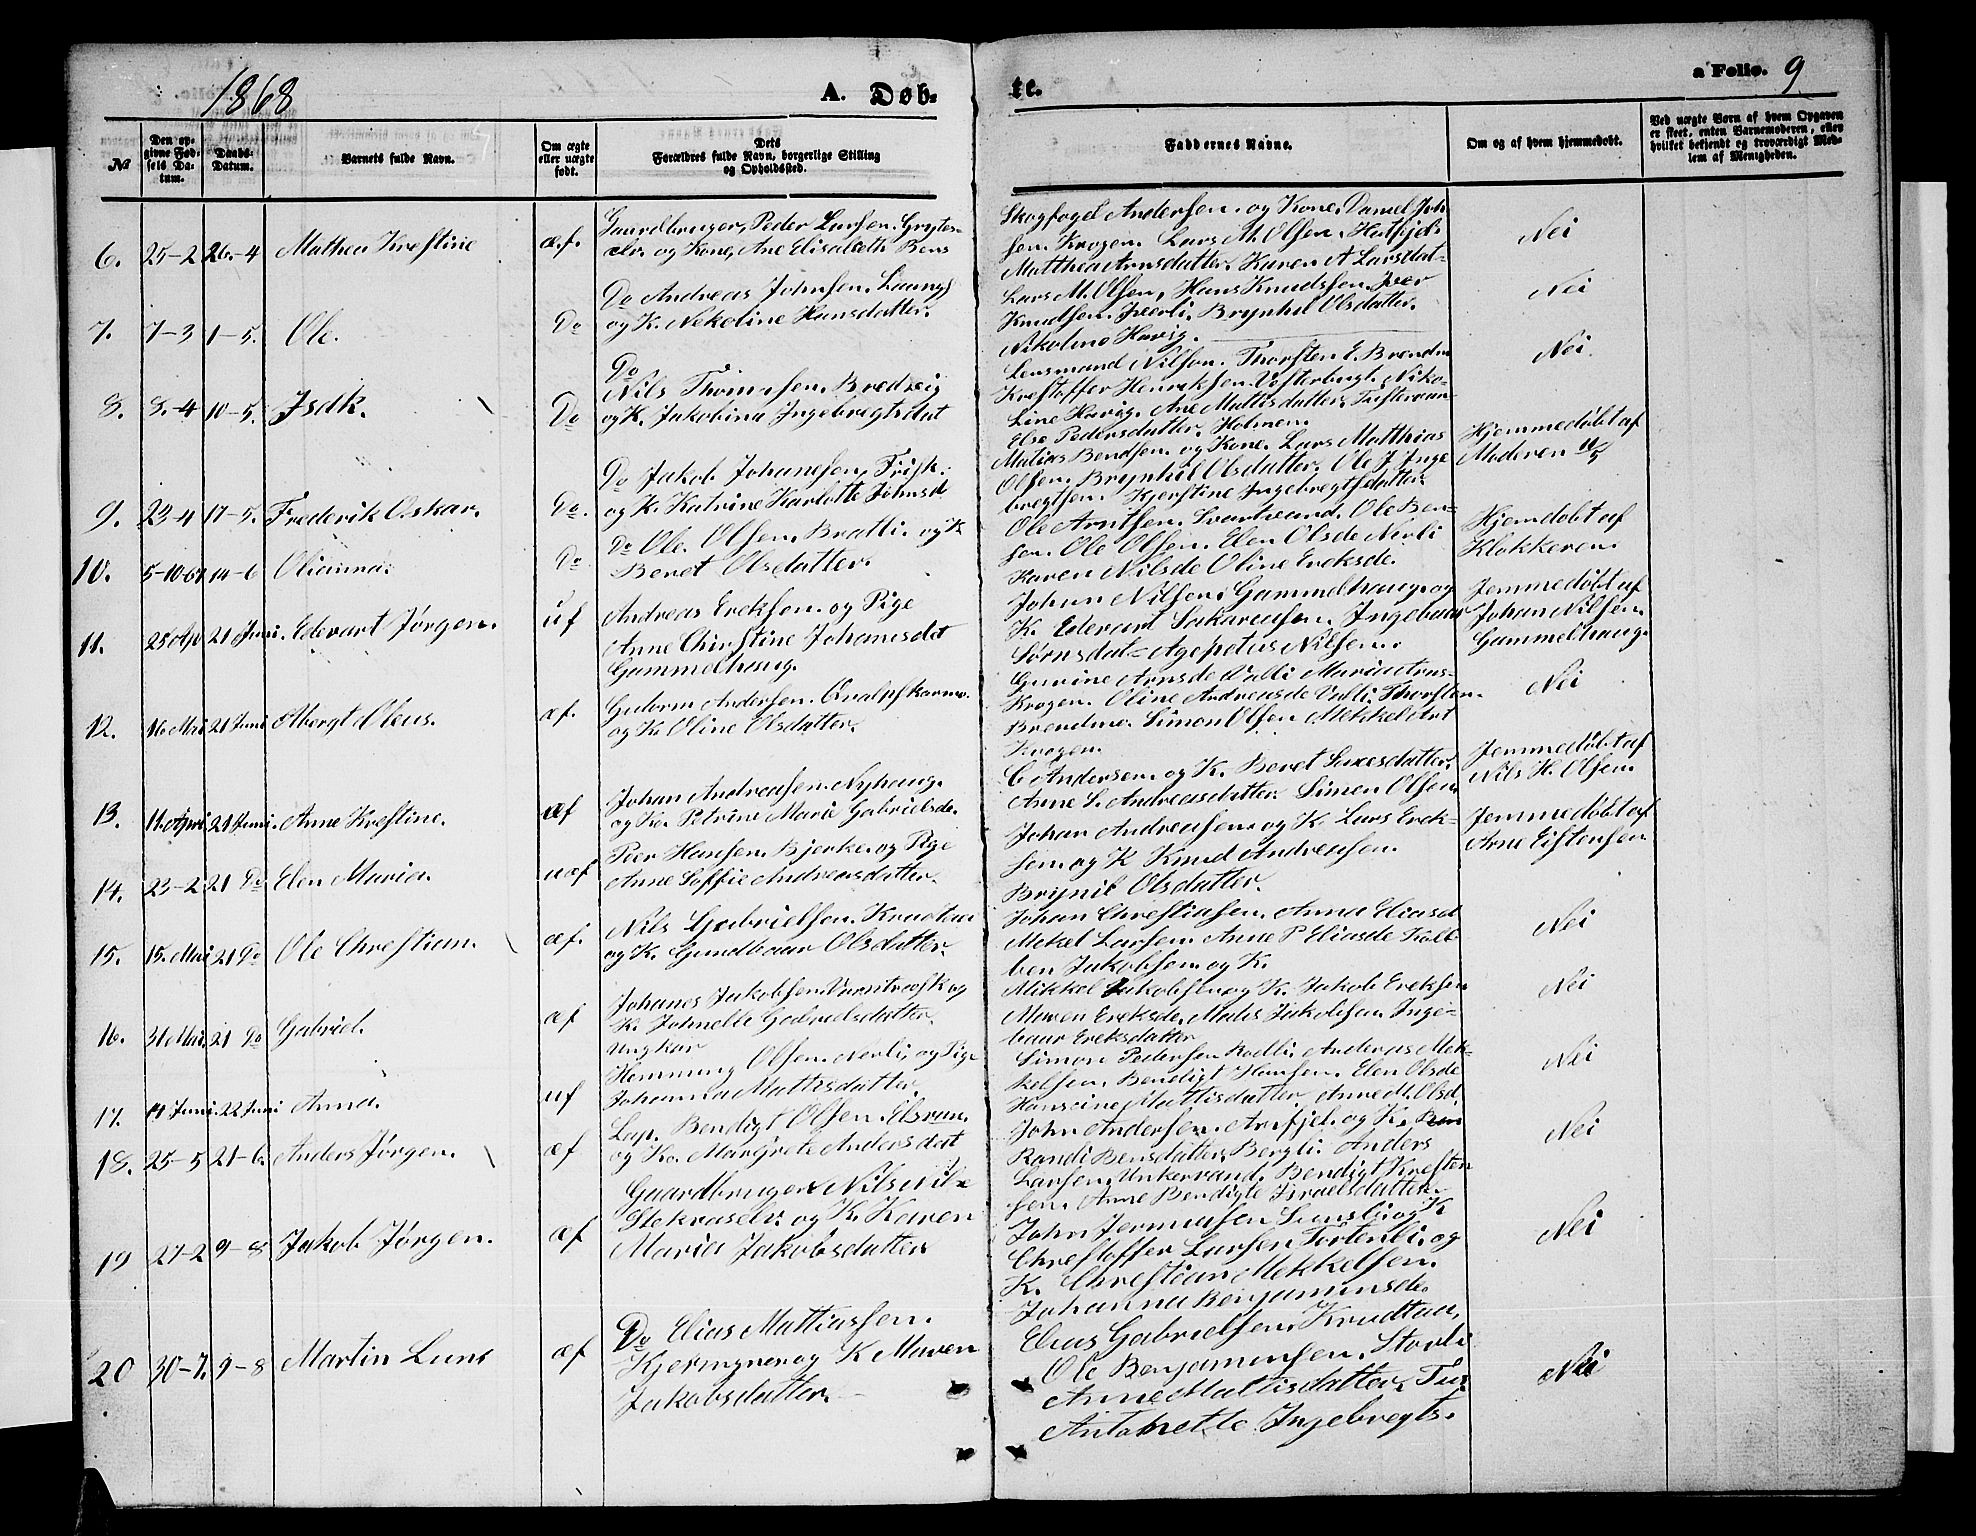 1868
A. Døb-
te.
a Folio. 9
№
Den op-
givne Fød-
sels Da-
tum.
Daabs-
Datum.
Barnets fulde Navn.
Om ægte
eller uægte
født.
Dets
Forældres fulde Navn, borgerlige Stilling
og Opholdssted.
Faddernes Navne.
Om og af hvem hjemmedøbt.
Ved uægte Børn af hvem Opgaven
er skeet, enten Barnemoderen, eller
hvilket bekjendt og troværdigt Med-
lem af Menigheden.
6. 25-2 26-4 Mathea Krestine æ.f.
Gaardbruger, Peder Larsen. Grytes-
elv. og Kone, Ane Elisabeth Bens
Skogfoged Andersen. og Kone. Daniel Joh
sen. Krogen. Lars M. Olsen. Hatfjeld
Matthea Arnsdatter. Karen A Larsdat-
Nei
7. 7-3 1-5. Ole. Do
Do Andreas Johnsen.
og K. Nekoline Hansdatter.
Lars M. Olsen, Hans Knudsen. Iver
Knudsen. Iverli. Brynhil Olsdatter.
Nikoline Havig.
Nei
8. 8-4 10-5. Isak. Do
Do
Nils Thomasen. Bredvig
og K. Jakobina Ingebregtsdat
Lensmand Nilson. Thorsten E. Brendm
Krestoffer Henreksen. Vesterbugt. Niko-
line Havig. Ane Mattisdatter. Tustervan-
Else Pedersdatter. Holmen.
Nei.
9. 23-4 17-5. Frederik Oskar. Do.
Do Jakob Johanesen, Frisk.
og K. Katrine Karlotte Johnsd
Matias Bendsen. og Kone. Lars Matthias
Olsen. Brynhil Olsdatter. Ole J. Inge
bregtsen. Kjerstine Ingebregtsdatter.
Hjemmedøbt af
Moderen
10. 5-10-67 14-6 Olianna. Do
Do Ole. Olsen. Bratli. og K
Beret Olsdatter.
Ole Arntsen. Svartvand. Ole Ben-
sen. Ole Olsen. Elen Olsde Nerli
Karen Nilsde Oline Ereksde.
Hjemdøbt af
Klokkeren.
11. 25 Apr 21 Juni. Edevart Jørgen. uf
Andreas Ereksen. og Pige
Anne Chirstine Johansdat
Gammelhaug.
Johan Nilsen. Gammelhaug. og
K. Edevart Sakareasen. Ingebaar
Sørnsdat- Agepetus Nilsen.
Jemmedøbt af
Johan Nilsen.
Gammelhaug.
12. 16 Mai 21 Juni Olbergt Oleus. æf.
Gutorm Andersen.
og K. Oline Olsdatter.
Gurine Arnsde Valli Maria Arns-
Krogen. Oline Andreasde Valli. Thorsten.
Brendmo. Simon Olsen Mekkel Art
Krogen.
Nei
13. 11. April 21 Juni. Anne Krestine. æf
Johan Andreasen. Nyhaug.
og K. Petrine Marie Gabrielsde.
C. Andersen. og K. Beret Simesdatter.
Anne S. Andreasdatter. Simon Olsen
Jemmedøbt af
Nils H. Olsen.
14. 23-2 21 Do Elen Maria. uæf
Peer Hansen. Bjerke. og Pige
Anne Soffie Andreasdatter.
Johan Andreasen. og K. Lars Erek-
sen. og K Knud Andreasen.
Brynil Olsdatter.
Jemmedøbt af
Arne Eistensen
15. 15. Mai 21 Do Ole Chrestian. æf.
Nils Gabrielsen. Krudtaa
og K. Gundbaar Olsdatter.
Johan Chrestiasen. Anna Eliasd
Mekel Larsen. Anne P Eliasde Kolb
ben Jakobsen og K.
Nei
16. 31 Mai. 21 Do Gabriel. æf
Johanes Jakobsen. Varntresk og
K. Johnelle Gabrielsdatter.
Mikkel Jakobsen og K. Jakob Ereksen
Maren Ereksde. Mates Jakobsen. Inge-
baar Ereksdatter
Nei
17. 14 Juni. 22 Juni Anna. uf
Ungkar
Hemming Olsen. Nerli, og Pige
Johanna Mattisdatter.
Simon Pedersen Rodli. Anderas Mek-
kelsen. Bendigt Hansen. Elen Olsde
Hanseine Mattisdatter. Anne M. Olsd.
Nei
18. 25-5 21-6. Anders Jørgen. æf
Lap. Bendigt Olsen. Elsvan.
og K. Margrete Andersdat
John Andersen. Arefjel. og K.
Randi Bensdatter. Bergli. Anders
Larsen. Unkervand. Bendigt Kresten
sen. Anne Bendigte Israelsdatter.
Nei
19 27-2 9-8 Jakob Jørgen. æf
Gaardbruger Nils Nil-
Stekvaselv. og K. Karen
Maria Jakobsdatter
John Jermiasen Sunsli og K
Chrestoffer Larsen Tortenli. og
K. Chrestian Mekkelsen.
Johanna Benjaminsde.
Nei
20 30-7. 9-8 Martin Luns æf
Do Elias Mattiassen.
Kjeringnes og K Maren
Jakobsdatter.
Elias Gabrielsen. Krudtaa,
Ole Benjaminsen. Storli
Anne Mattisdatter.
Antonette Ingebregts.
Nei